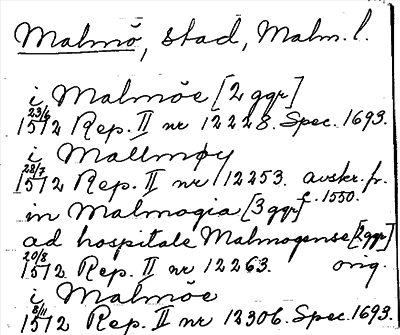 Malmö, stad, Malm. l.
i Malmöe [2 ggr]
23/6 1512 Rep. II nr 12228. Spec. 1693.
i Mallmøy
28/7 1512 Rep. II nr 12253. avskr. fr. c. 1550.
in Malmogia [3 ggr]
ad hospitale Malmogense [2 ggr]
20/8 1512 Rep. II nr 12263. orig.
i Malmöe
8/11 1512 Rep. II nr 12306. Spec. 1693.